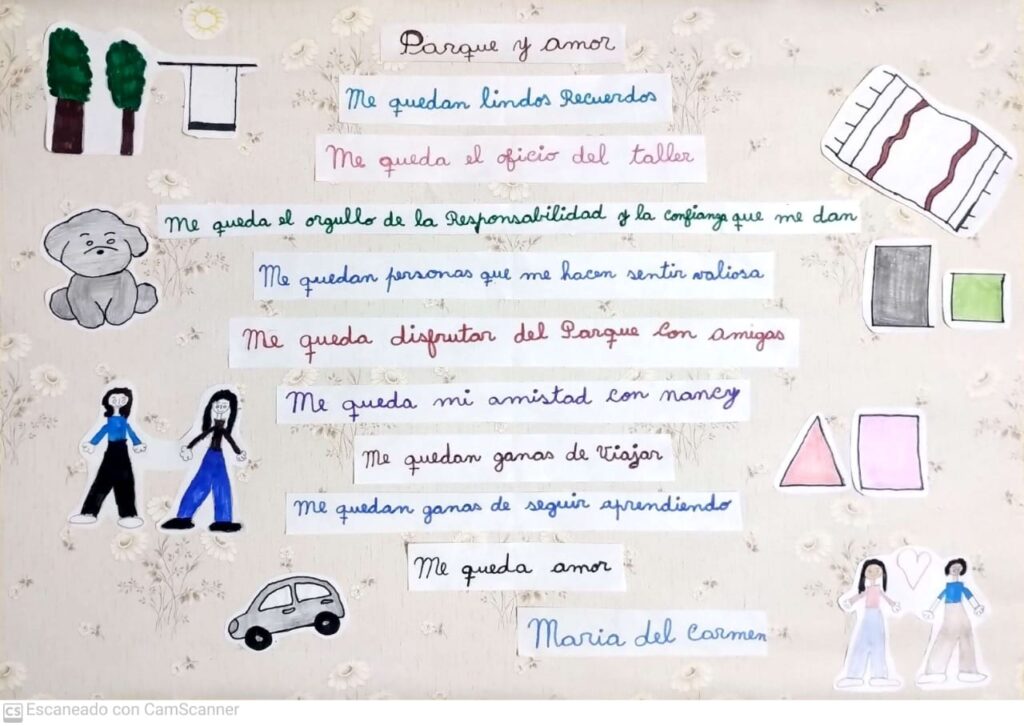 Parque y amor
Me quedan lindos Recuerdos
Me queda el oficio del taller
Me queda el orgullo de la Responsabilidad y la confianza que me dan
Me quedan personas que me hacen sentir valiosa
Me queda disfrutar del Parque Con amigas
Me queda mi amistad con nancy
Me quedan ganas de Viajar
Me quedan ganas de seguir aprendiendo
Me queda amor
Maria del Carmen
CS Escaneado con CamScanner